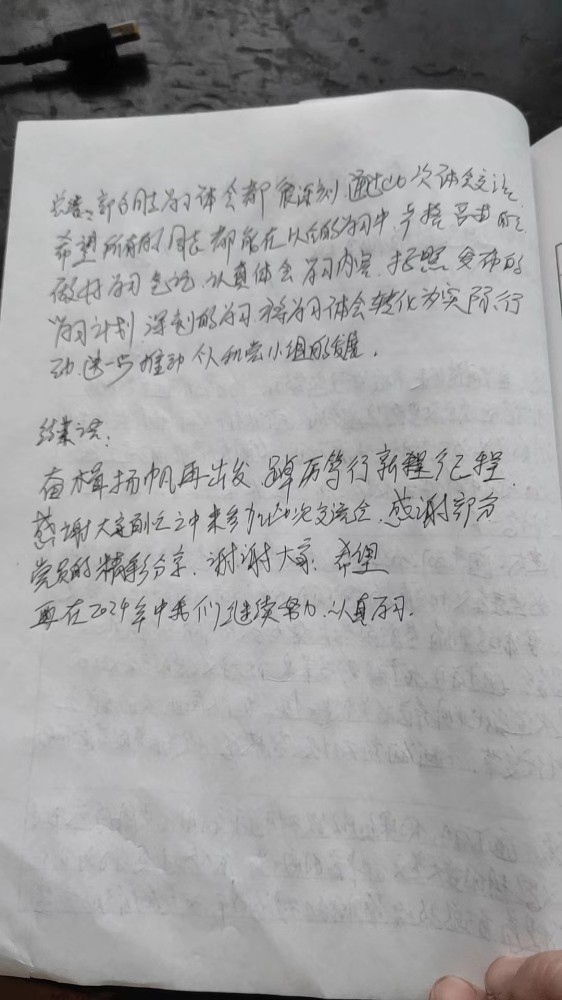 部分同志学习体会都很深刻,通过此次体会交流
希望所有的同志都能在以后的学习中,
做好学习笔记,认真体会学习内容,按照发布的
学习计划,深刻的学习,将学习体会转化为实际行
动,进一步推动个人和党小组的发展。
结束语:
奋楫扬帆再出发,踔厉笃行新程,
感谢大家百忙之中来参加此次交流会,感谢部分
党员的精彩分享,谢谢大家,希望
在2024年中我们继续努力,认真学习.